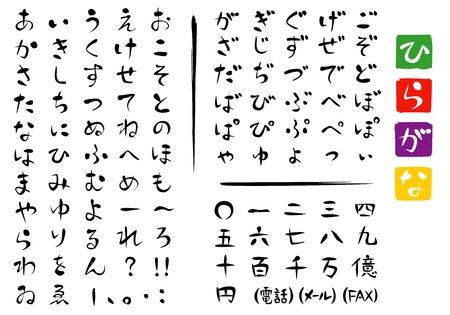 あ い う え お
か き く け こ
さ し す せ そ
た ち つ て と
な に ぬ ね の
は ひ ふ へ ほ
ま み む め も
や ゆ よ ー 〜
ら り る れ ろ
わ を ん ? !!
ゐ ゑ ー、 。 ・ :
が ぎ ぐ げ ご
ざ じ ず ぜ ぞ
だ ぢ づ で ど
ば び ぶ べ ぼ
ぱ ぴ ぷ ぺ ぽ
ゃ ゅ ょ っ ぃ
〇 一 二 三 四
五 六 七 八 九
十 百 千 万 億
円 (電話) (メール) (FAX)
ひらがな